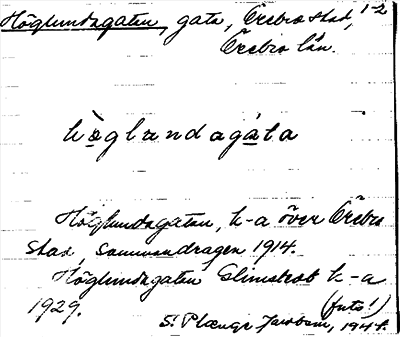 Höglundagatan, gata, Örebro stad, 1-2
Örebro län.
hö̀glundagáta
Höglundagatan, k-a över Örebro
stad, sammandragen 1914.
Höglundagatan k-a
1929. (futs!)
S. Plænge Jacobson, 1944.